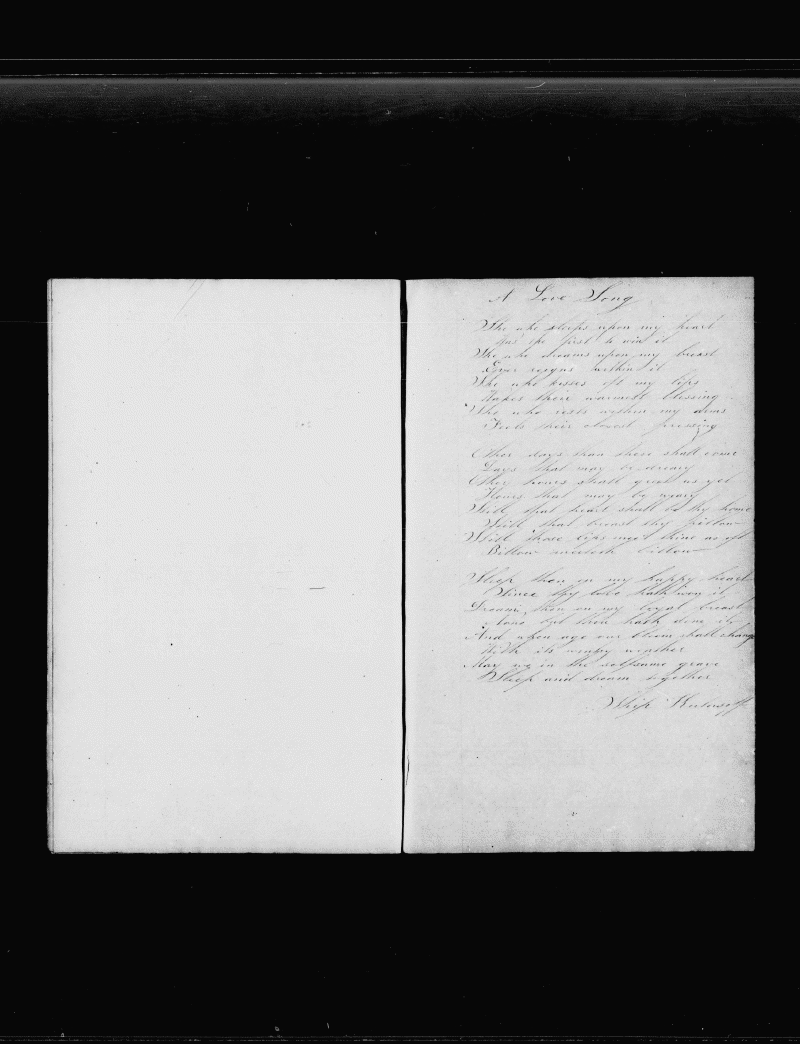 A Love Song
She who sleeps upon my heart
Was the first to win it
She who dreams upon my breast
Ever reigns within it
She who kisses oft my lips
Wakes their warmest blessing
She who rests within my arms
Feels their closest pressing
Other days than these shall come
Days that may be dreary
Other hours shall greet us yet
Hours that may be weary
Still that heart shall be thy home
Still that breast thy pillow
Still those lips meet thine as oft
Billow meeteth billow
Sleep then on my happy heart
Since thy love hath won it
Dream, then on my loyal breast
None but thou hath done it
And when age our bloom shall change
With its wintry weather
May we in the selfsame grave
Sleep and dream together
Ship